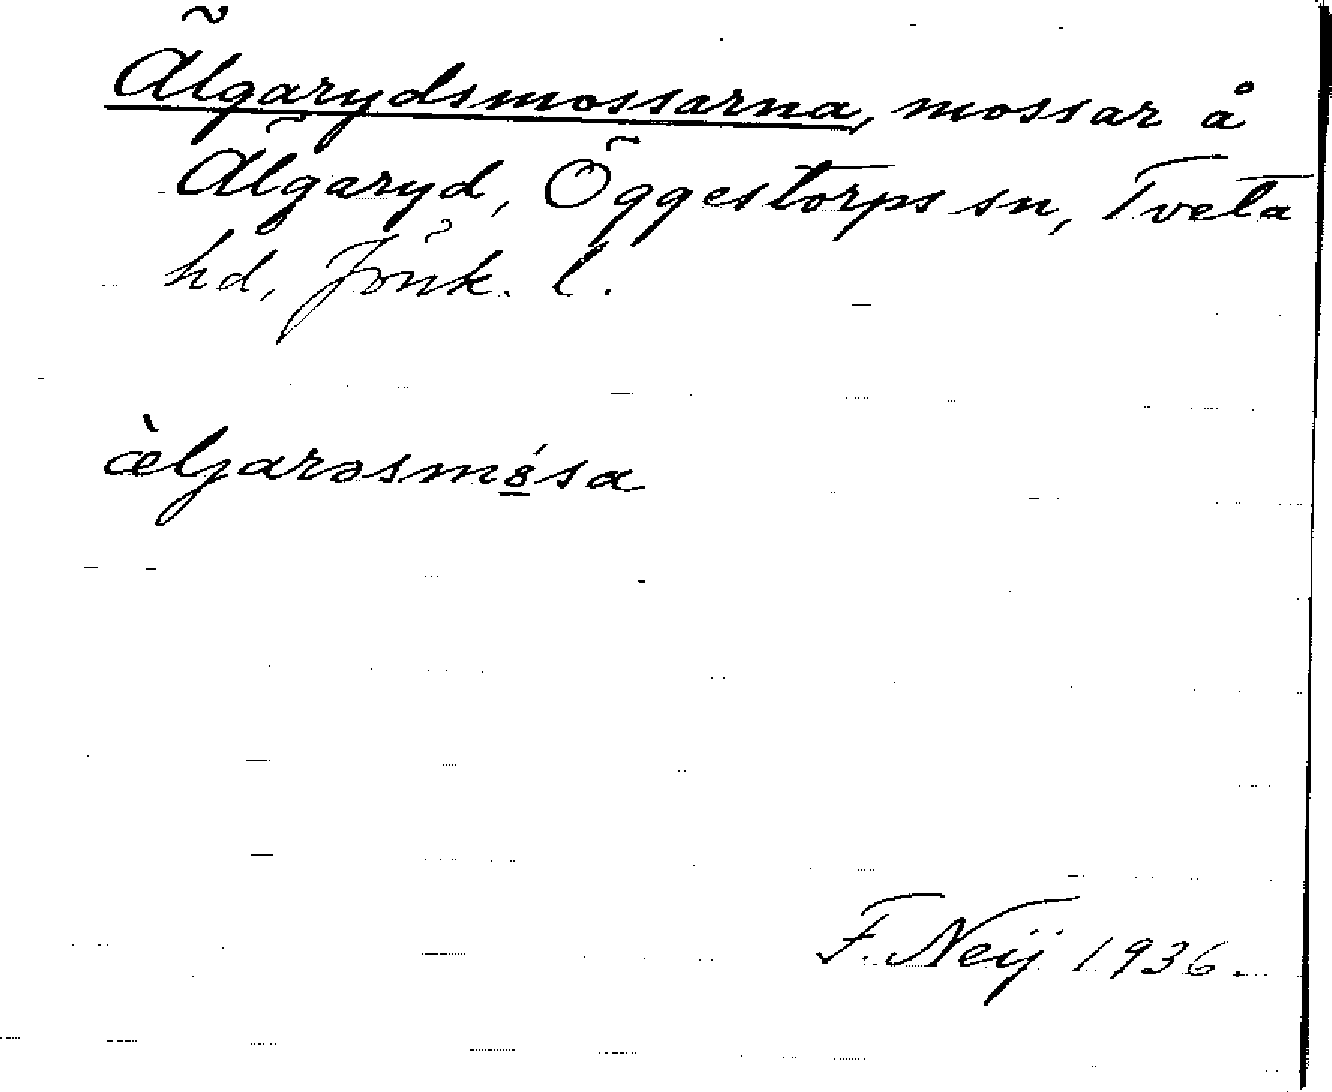 Älgarydsmossarna, mossar å
Älgaryd, Öggestorps sn, Tveta
hd, Jönk. l.
æ̀ljarəsmȣ́sa
F. Neij 1936.